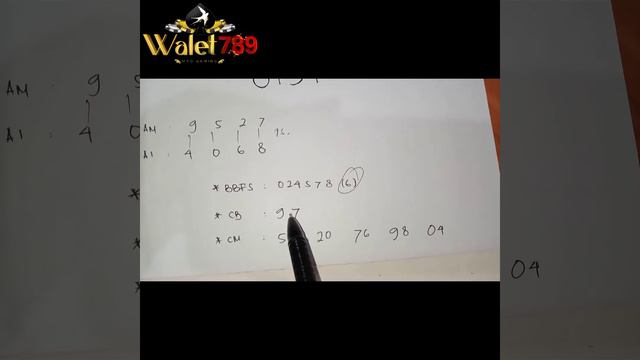 Walet789
AM : 9 5 2 7
AI : 4 0 6 8
* BBFS : 024578 (6)
* CB : 97
* CM : 5 20 76 98 04